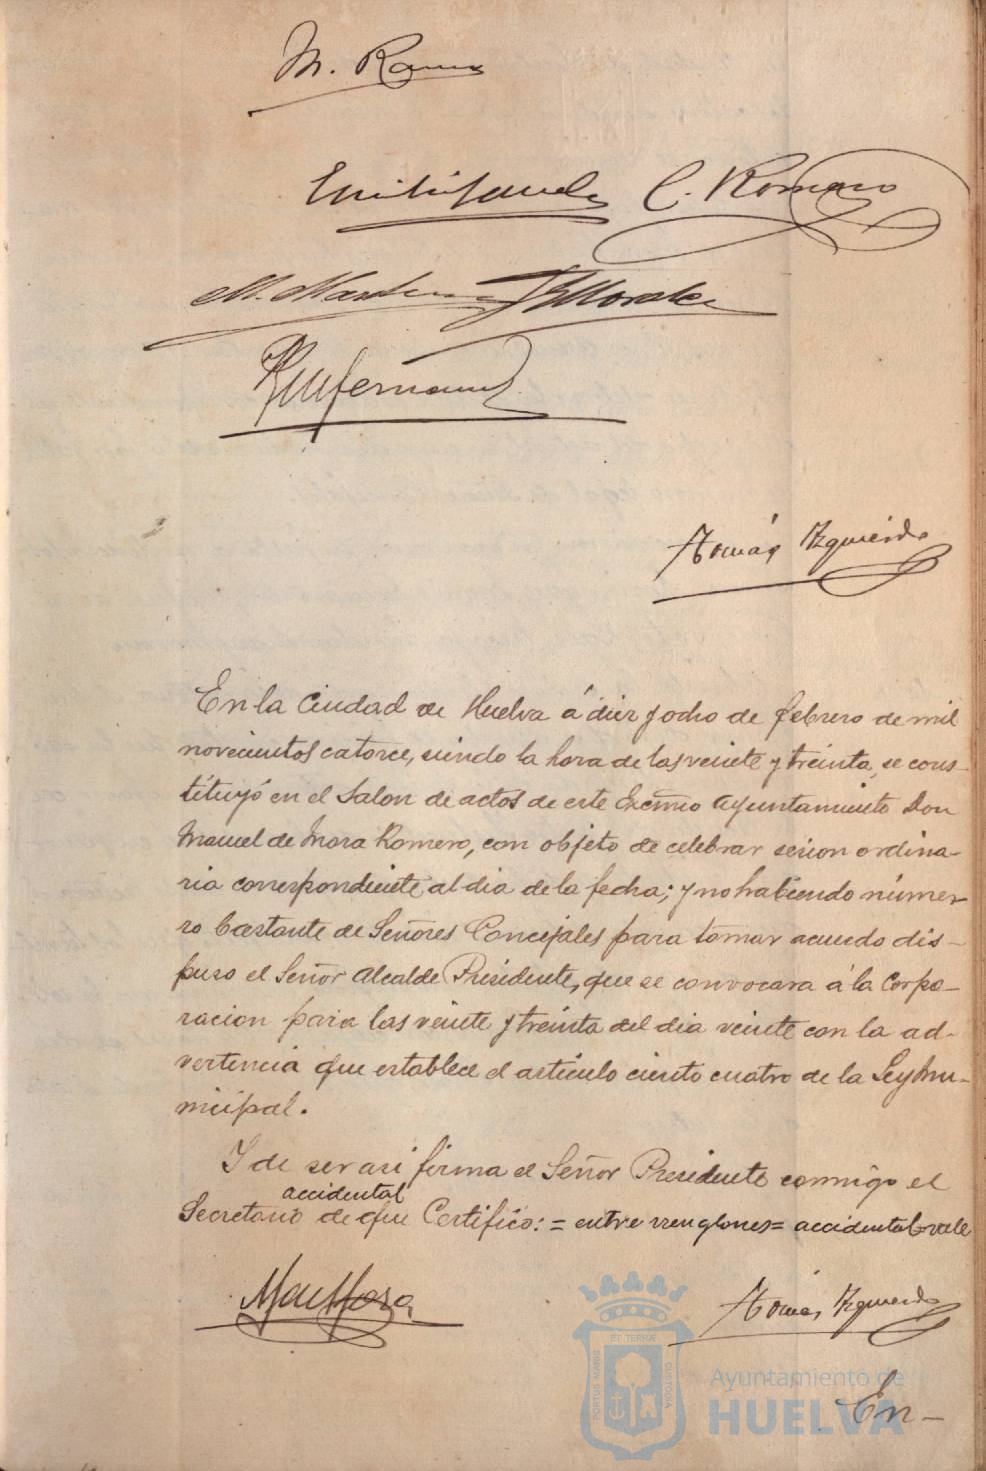 M. Ramos
C. Romano
M. Martinez J. Morales
Tomás Izquierdo
En la Ciudad de Huelva á diez y ocho de febrero de mil
novecientos catorce, siendo la hora de las veinte y treinta, se cons-
tituyó en el Salon de actos de este Excmo Ayuntamiento Don
Manuel de Mora Romero, con objeto de celebrar sesion ordina-
ria correspondiente al dia de la fecha; y no habiendo núme-
ro bastante de Señores Concejales para tomar acuerdo dis-
puso el Señor Alcalde Presidente, que se convocara á la Corpo-
racion para las veinte y treinta del dia veinte con la ad-
vertencia que establece el artículo ciento cuatro de la Ley Mu-
nicipal.
Y de ser asi firma el Señor Presidente conmigo el
accidental
Secretario de que Certifico: = entre renglones = accidental = vale
Man Mora
Tomás Izquierdo
En-
PORTUS MARIS
ET TERRAE
CUSTODIA
Ayuntamiento de
HUELVA